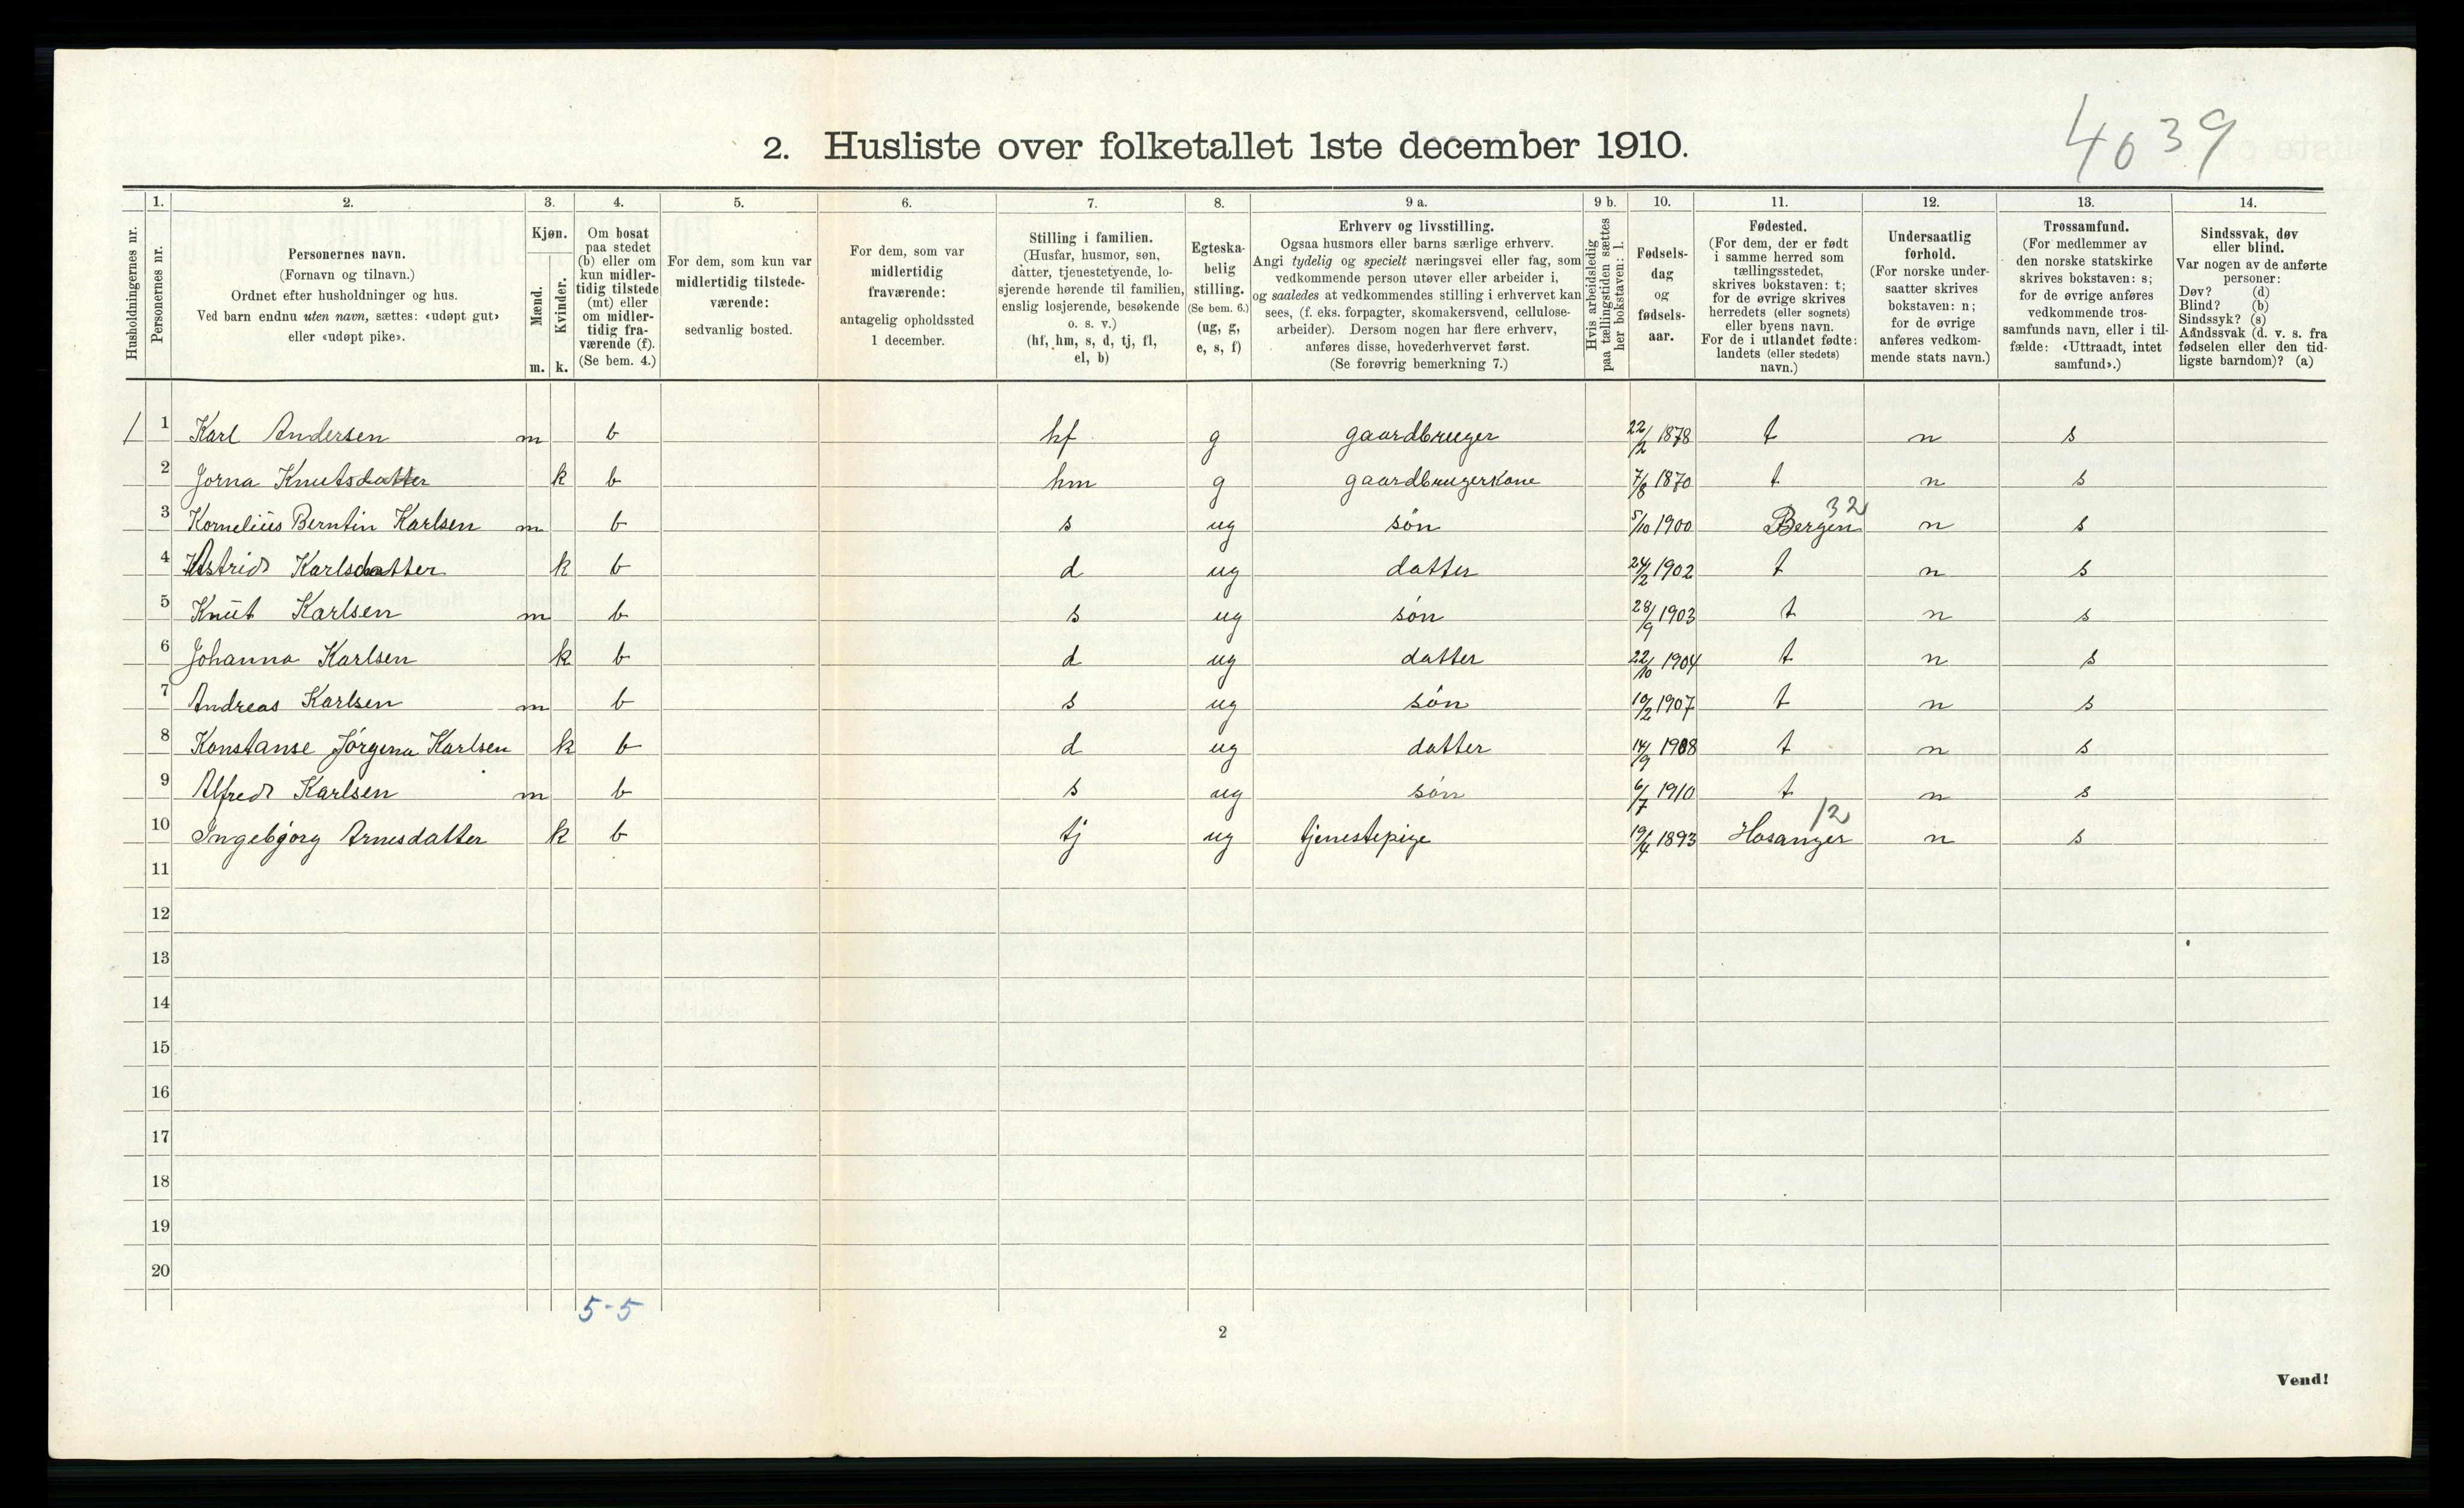 4039
2. Husliste over folketallet 1ste december 1910.
Husholdningernes nr.
1. Personernes nr.
2. Personernes navn. (Fornavn og tilnavn.) Ordnet efter husholdninger og hus. Ved barn endnu uten navn, sættes: «udøpt gut» eller «udøpt pike».
3. Kjøn. Mænd. m. Kvinder. k.
4. Om bosat paa stedet (b) eller om kun midlertidig tilstede (mt) eller om midlertidig fraværende (f). (Se bem. 4.)
5. For dem, som kun var midlertidig tilstedeværende: sedvanlig bosted.
6. For dem, som var midlertidig fraværende: antagelig opholdssted 1 december.
7. Stilling i familien. (Husfar, husmor, søn, datter, tjenestetyende, losjerende hørende til familien, enslig losjerende, besøkende o. s. v.) (hf, hm, s, d, tj, fl, el, b)
8. Egteskabelig stilling. (Se bem. 6.) (ug, g, e, s, f)
9 a. Erhverv og livsstilling. Ogsaa husmors eller barns særlige erhverv. Angi tydelig og specielt næringsvei eller fag, som vedkommende person utøver eller arbeider i, og saaledes at vedkommendes stilling i erhvervet kan sees, (f. eks. forpagter, skomakersvend, cellulosearbeider). Dersom nogen har flere erhverv, anføres disse, hovederhvervet først. (Se forøvrig bemerkning 7.)
9 b. Hvis arbeidsledig paa tællingstiden sættes her bokstaven: l.
10. Fødselsdag og fødselsaar.
11. Fødested. (For dem, der er født i samme herred som tællingsstedet, skrives bokstaven: t; for de øvrige skrives herredets (eller sognets) eller byens navn. For de i utlandet fødte: landets (eller stedets) navn.)
12. Undersaatlig forhold. (For norske undersaatter skrives bokstaven: n; for de øvrige anføres vedkommende stats navn.)
13. Trossamfund. (For medlemmer av den norske statskirke skrives bokstaven: s; for de øvrige anføres vedkommende trossamfunds navn, eller i tilfælde: «Uttraadt, intet samfund».)
14. Sindssvak, døv eller blind. Var nogen av de anførte personer: Døv? (d) Blind? (b) Sindssyk? (s) Aandssvak (d. v. s. fra fødselen eller den tidligste barndom)? (a)
1 1 Karl Andersen m b hf g gaardbruger 22/2 1878 t n s
2 Jorna Knutsdatter k b hm g gaardbrugerkone 7/8 1870 t n s
3 Kornelius Berntin Karlsen m b s ug søn 5/10 1900 Bergen 32 n s
4 Astrid Karlsdatter k b d ug datter 24/2 1902 t n s
5 Knut Karlsen m b s ug søn 28/9 1903 t n s
6 Johanna Karlsen k b d ug datter 22/10 1904 t n s
7 Andreas Karlsen m b s ug søn 10/2 1907 t n s
8 Konstanse Jørgena Karlsen k b d ug datter 14/9 1908 t n s
9 Alfred Karlsen m b s ug søn 6/7 1910 t n s
10 Ingebjørg Arnesdatter k b tj ug tjenestepige 19/4 1893 Hosanger 12 n s
11
12
13
14
15
16
17
18
19
20
5-5
2
Vend!